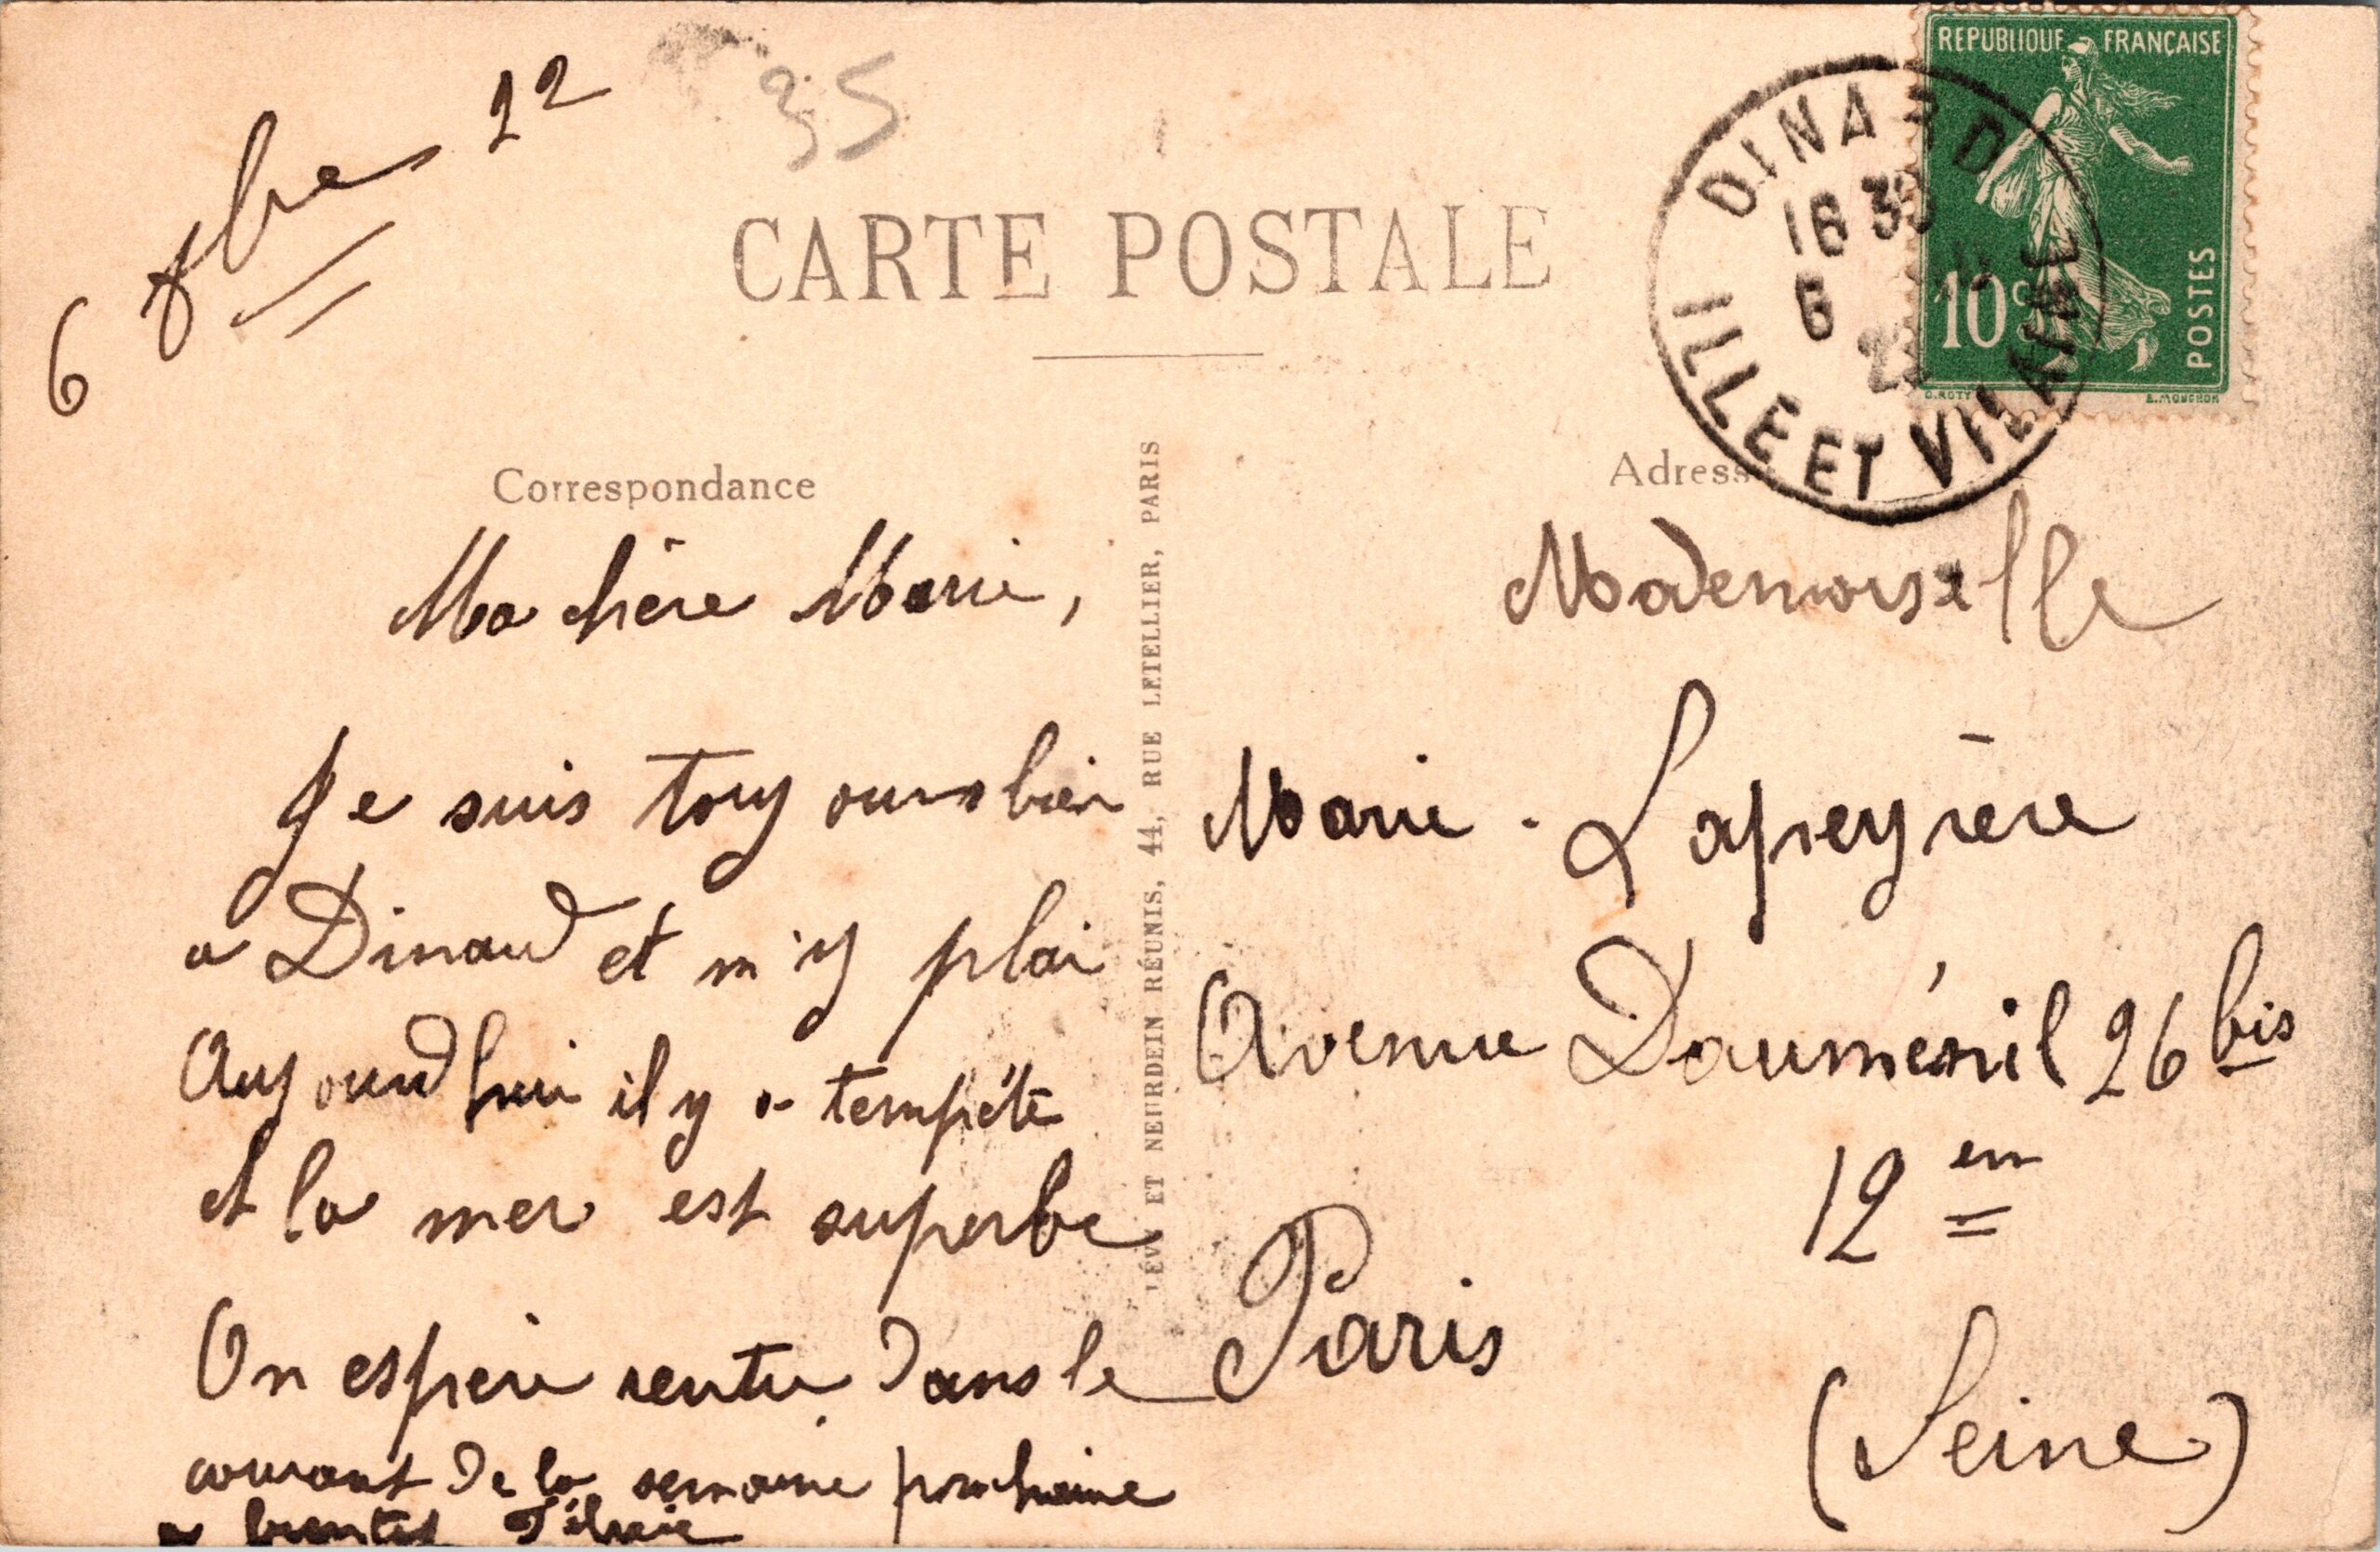 6 7bre 22
35
CARTE POSTALE
REPUBLIQUE FRANÇAISE
10c
POSTES
O.ROTY
E.MOUCHON
DINARD
16 30
6
22
ILLE ET VILAINE
Correspondance
Ma chère Marie,
Je suis toujours bien
a Dinard et m'y plai
Aujourd'hui il y a tempête
et la mer est superbe
On espère rentrer dans le
courant de la semaine prochaine
a bientôt
LÉVY ET NEURDEIN RÉUNIS, 44, RUE LETELLIER, PARIS
Adresse
Mademoiselle
Marie Lapeyrère
Avenue Dauménil 26 bis
12 em
Paris
(Seine)